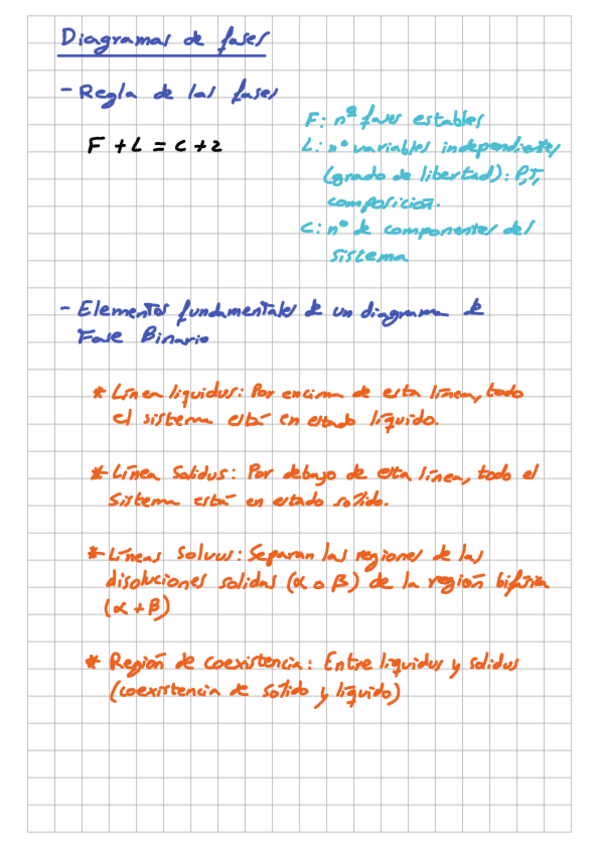 Diagramas de fases
- Regla de las fases
F + L = C + 2
F: nº fases estables
L: nº variables independientes
(grado de libertad): P,T,
composición.
C: nº de componentes del
sistema
- Elementos fundamentales de un diagrama de
Fase Binario
* Línea liquidus: Por encima de esta línea, todo
el sistema está en estado líquido.
* Línea Solidus: Por debajo de esta línea, todo el
Sistema está en estado solido.
* Líneas Solvus: Separan las regiones de las
disoluciones solidas (α o β) de la región bifásica
(α + β)
* Región de coexistencia: Entre liquidus y solidus
(coexistencia de sólido y líquido)